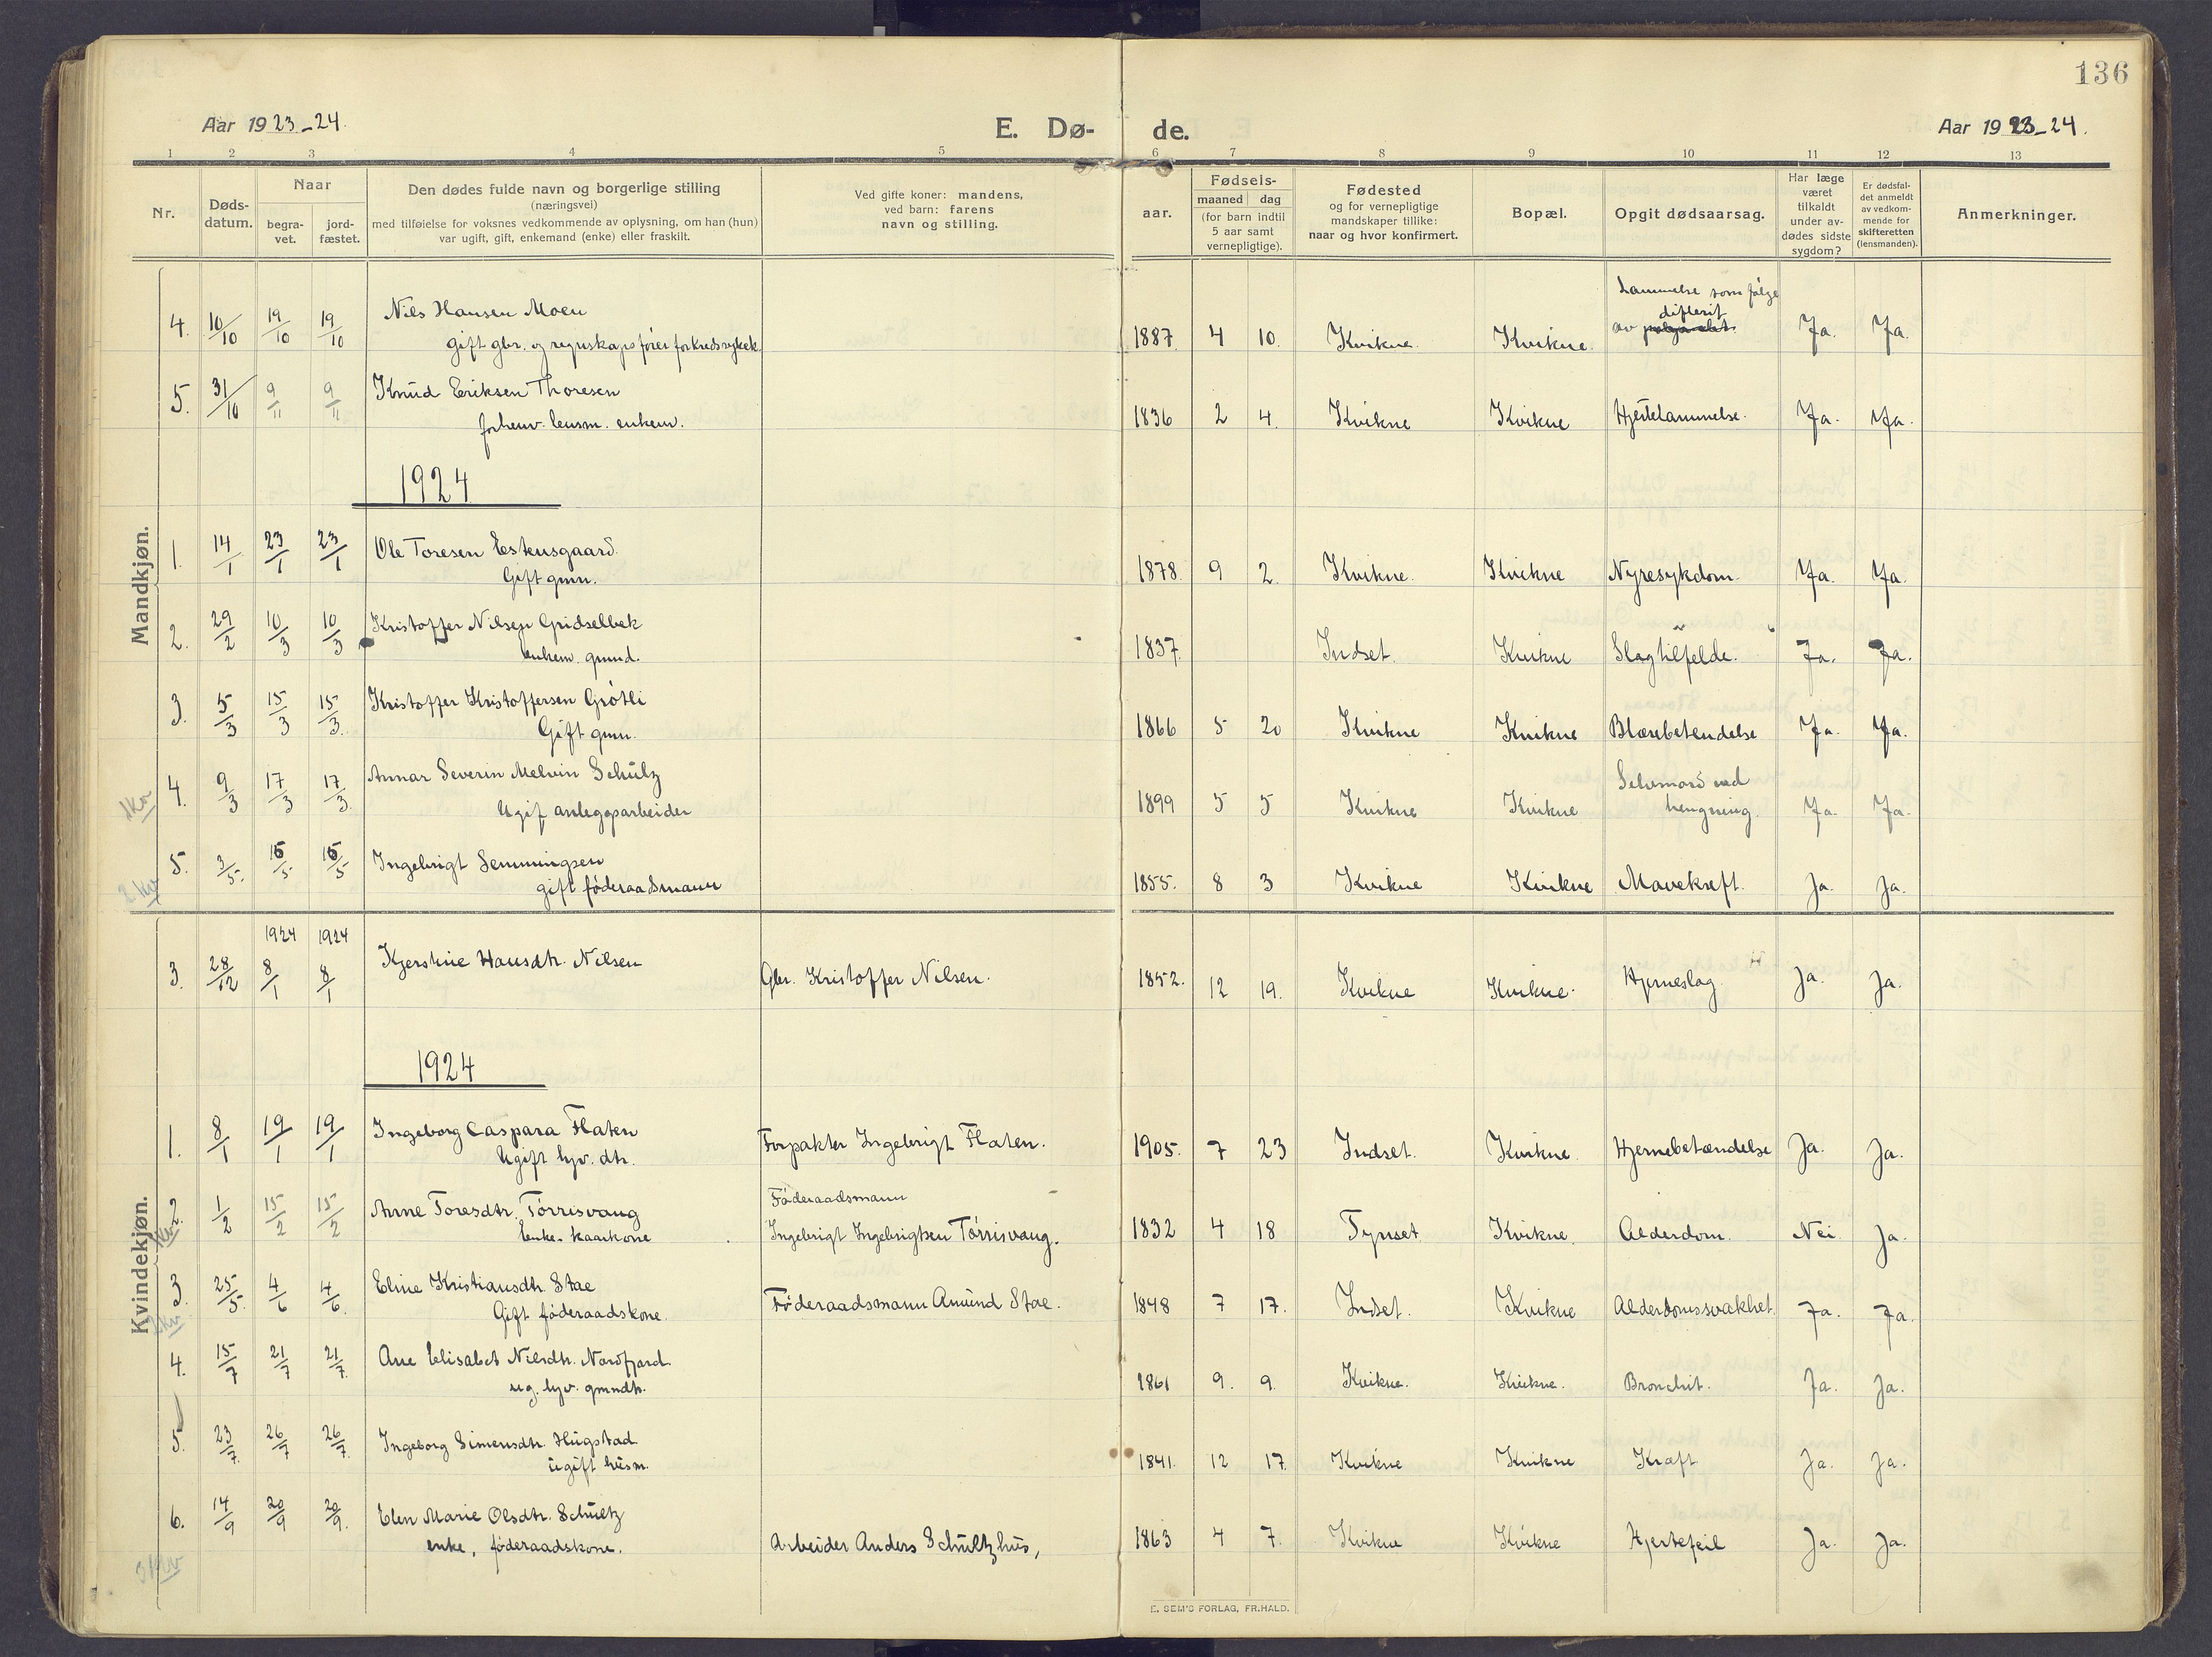 136
Aar 1923-24.
E. Dø-
de.
Aar 1923-24.
1 2 3 4 5 6 7 8 9 10 11 12 13
Nr.
Døds-
datum.
Naar
begra-
vet.
jord-
fæstet.
Den dødes fulde navn og borgerlige stilling
(næringsvei)
med tilføielse for voksnes vedkommende av oplysning, om han (hun)
var ugift, gift, enkemand (enke) eller fraskilt.
Ved gifte koner: mandens,
ved barn: farens
navn og stilling.
aar.
Fødsels-
maaned dag
(for barn indtil
5 aar samt
vernepligtige).
Fødested
og for vernepligtige
mandskaper tillike:
naar og hvor konfirmert.
Bopæl.
Opgit dødsaarsag.
Har læge
været
tilkaldt
under av-
dødes sidste
sygdom?
Er dødsfal-
det anmeldt
av vedkom-
mende for
skifteretten
(lensmanden).
Anmerkninger.
Mandkjøn.
Lammelse som følge
difterit
4. 10/10 19/10 19/10 Nils Hansen Moen 1887 4 10. Kvikne. Kvikne. av Ja. Ja.
gift gbr. og regnskapsfører
5. 31/10 9/11 9/11 Knud Eriksen Thoresen 1836 2 4. Kvikne Kvikne Hjertelammelse. Ja. Ja.
forhenv. lensm. enkem.
1924
1. 14/1 23/1 23/1 Ole Toresen Estensgaard. 1878. 9 2. Kvikne. Kvikne Nyresykdom. Ja. Ja.
Gift gmn.
2. 29/2 10/3 10/3 Kristoffer Nilsen Gridselbek 1837. Indset. Kvikne Slagtilfelde. Ja. Ja.
enkem. gmnd.
3. 5/3 15/3 15/3. Kristoffer Kristoffersen Grötli 1866 5 20 Kvikne Kvikne Blærebetendelse Ja. Ja.
Gift gmn.
4. 9/3 17/3 17/3. Annar Severin Melvin Schulz 1899 5 5 Kvikne Kvikne Selvmord ved
hengning. Ja. Ja.
Ugif anleggsarbeider
1 kv
5. 3/5. 15/5 15/5 Ingebrigt Semmingsen 1855. 8 3 Kvikne Kvikne Mavekreft. Ja. Ja.
gift föderaadsmann
2 kv
Kvindekjøn.
1924 1924
3. 28/12 8/1 8/1 Kjerstine Hansdtr. Nilsen Gbr. Kristoffer Nilsen. 1852. 12 19. Kvikne Kvikne. Hjerneslag. Ja. Ja.
1924
1. 8/1 19/1 19/1 Ingeborg Caspara Flaten Forpakter Ingebrigt Flaten. 1905. 7 23 Indset. Kvikne. Hjernebetændelse Ja. Ja.
Ugift hjv. dtr.
2. 1/2 15/2 15/2 Anne Toresdtr. Törrisvang Föderaadsmann
Ingebrigt Ingebrigtsen Törrisvang. 1832 4 18 Tynset Kvikne. Alderdom. Nei. Ja.
Enke. kaarkone
3. 25/5. 4/6 4/6. Eline Kristiansdtr. Stae Föderaadsmann Amund Stae. 1848 7 17. Indset. Kvikne Alderdomssvakhet. Ja. Ja.
Gift föderaadskone.
4. 15/7 21/7 21/7. Ane Elisabet Nilsdtr. Nordfjard 1861 9. 9. Kvikne. Kvikne. Bronchit. Ja. Ja.
ug. hjv. gmndtr.
5. 23/7. 26/7 26/7. Ingeborg Simensdtr. Hugstad 1841. 12 17. Kvikne Kvikne Kræft Ja. Ja.
ugift husm.
6. 14/9 20/9 20/9. Elen Marie Olsdtr. Schultz Arbeider Anders Schultzhus, 1863 4 7. Kvikne Kvikne Hjertefeil Ja. Ja.
enke, föderaadskone.
3 kv
E. SEM'S FORLAG, FR.HALD.